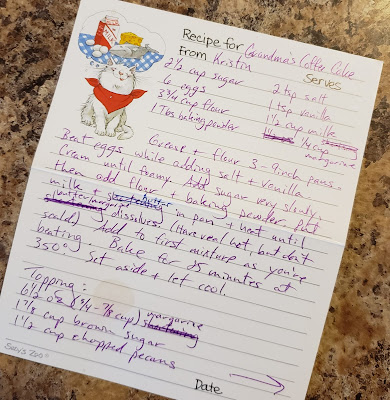 Recipe for Grandma's Coffee Cake
From Kristin Serves
2 1/2 cup sugar 2 tsp salt
6 eggs 1 tsp vanilla
3 3/4 cup flour 1 1/2 cup milk
1 Tbs baking powder 1/4 cup margarine
Grease + flour 3 - 9 inch pans.
Beat eggs while adding salt + vanilla.
Cream until foamy. Add sugar very slowly,
then add flour + baking powder. Put
milk + in pan + heat until
dissolves. (Have real hot, but don't
scald) Add to first mixture as you're
beating. Bake for 25 minutes at
350°. Set aside + let cool.
Topping:
6 1/2 oz (3/4 - 7/8 cup) margarine
1 7/8 cup brown sugar
1 1/2 cup chopped pecans
Suzy's Zoo®
Date